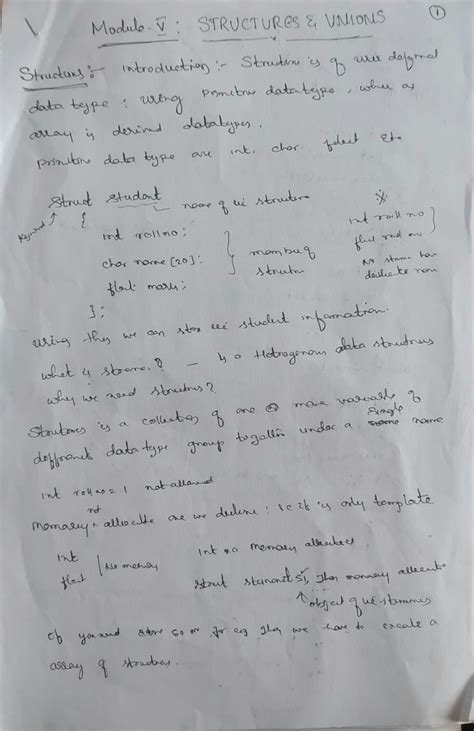 ①
Module-V : STRUCTURES & UNIONS
Structures :- Introduction :- Structure is of user defined
data type : using primitive data type, where as
array is derived datatypes.
primitive data type are int, char, float etc
Struct Student name of the structure
Keyword
{
int rollno;
char name [20];
float marks;
};
member of
structure
int roll no
float roll no
No same
duplicate name
using this we can store the student information.
what is structure? — is a Hetrogenous data structures
why we need structures?
Structures is a collection of one or more variable of
different data type group together under a single name
int rollno = 1 not allowed
memory not allocate one we declare : it is only template
int
float
No memory
int a memory allocated
struct student s1, then memory allocate
object of the structures
If you need store 60 or for eg then we have to create a
array of structures.